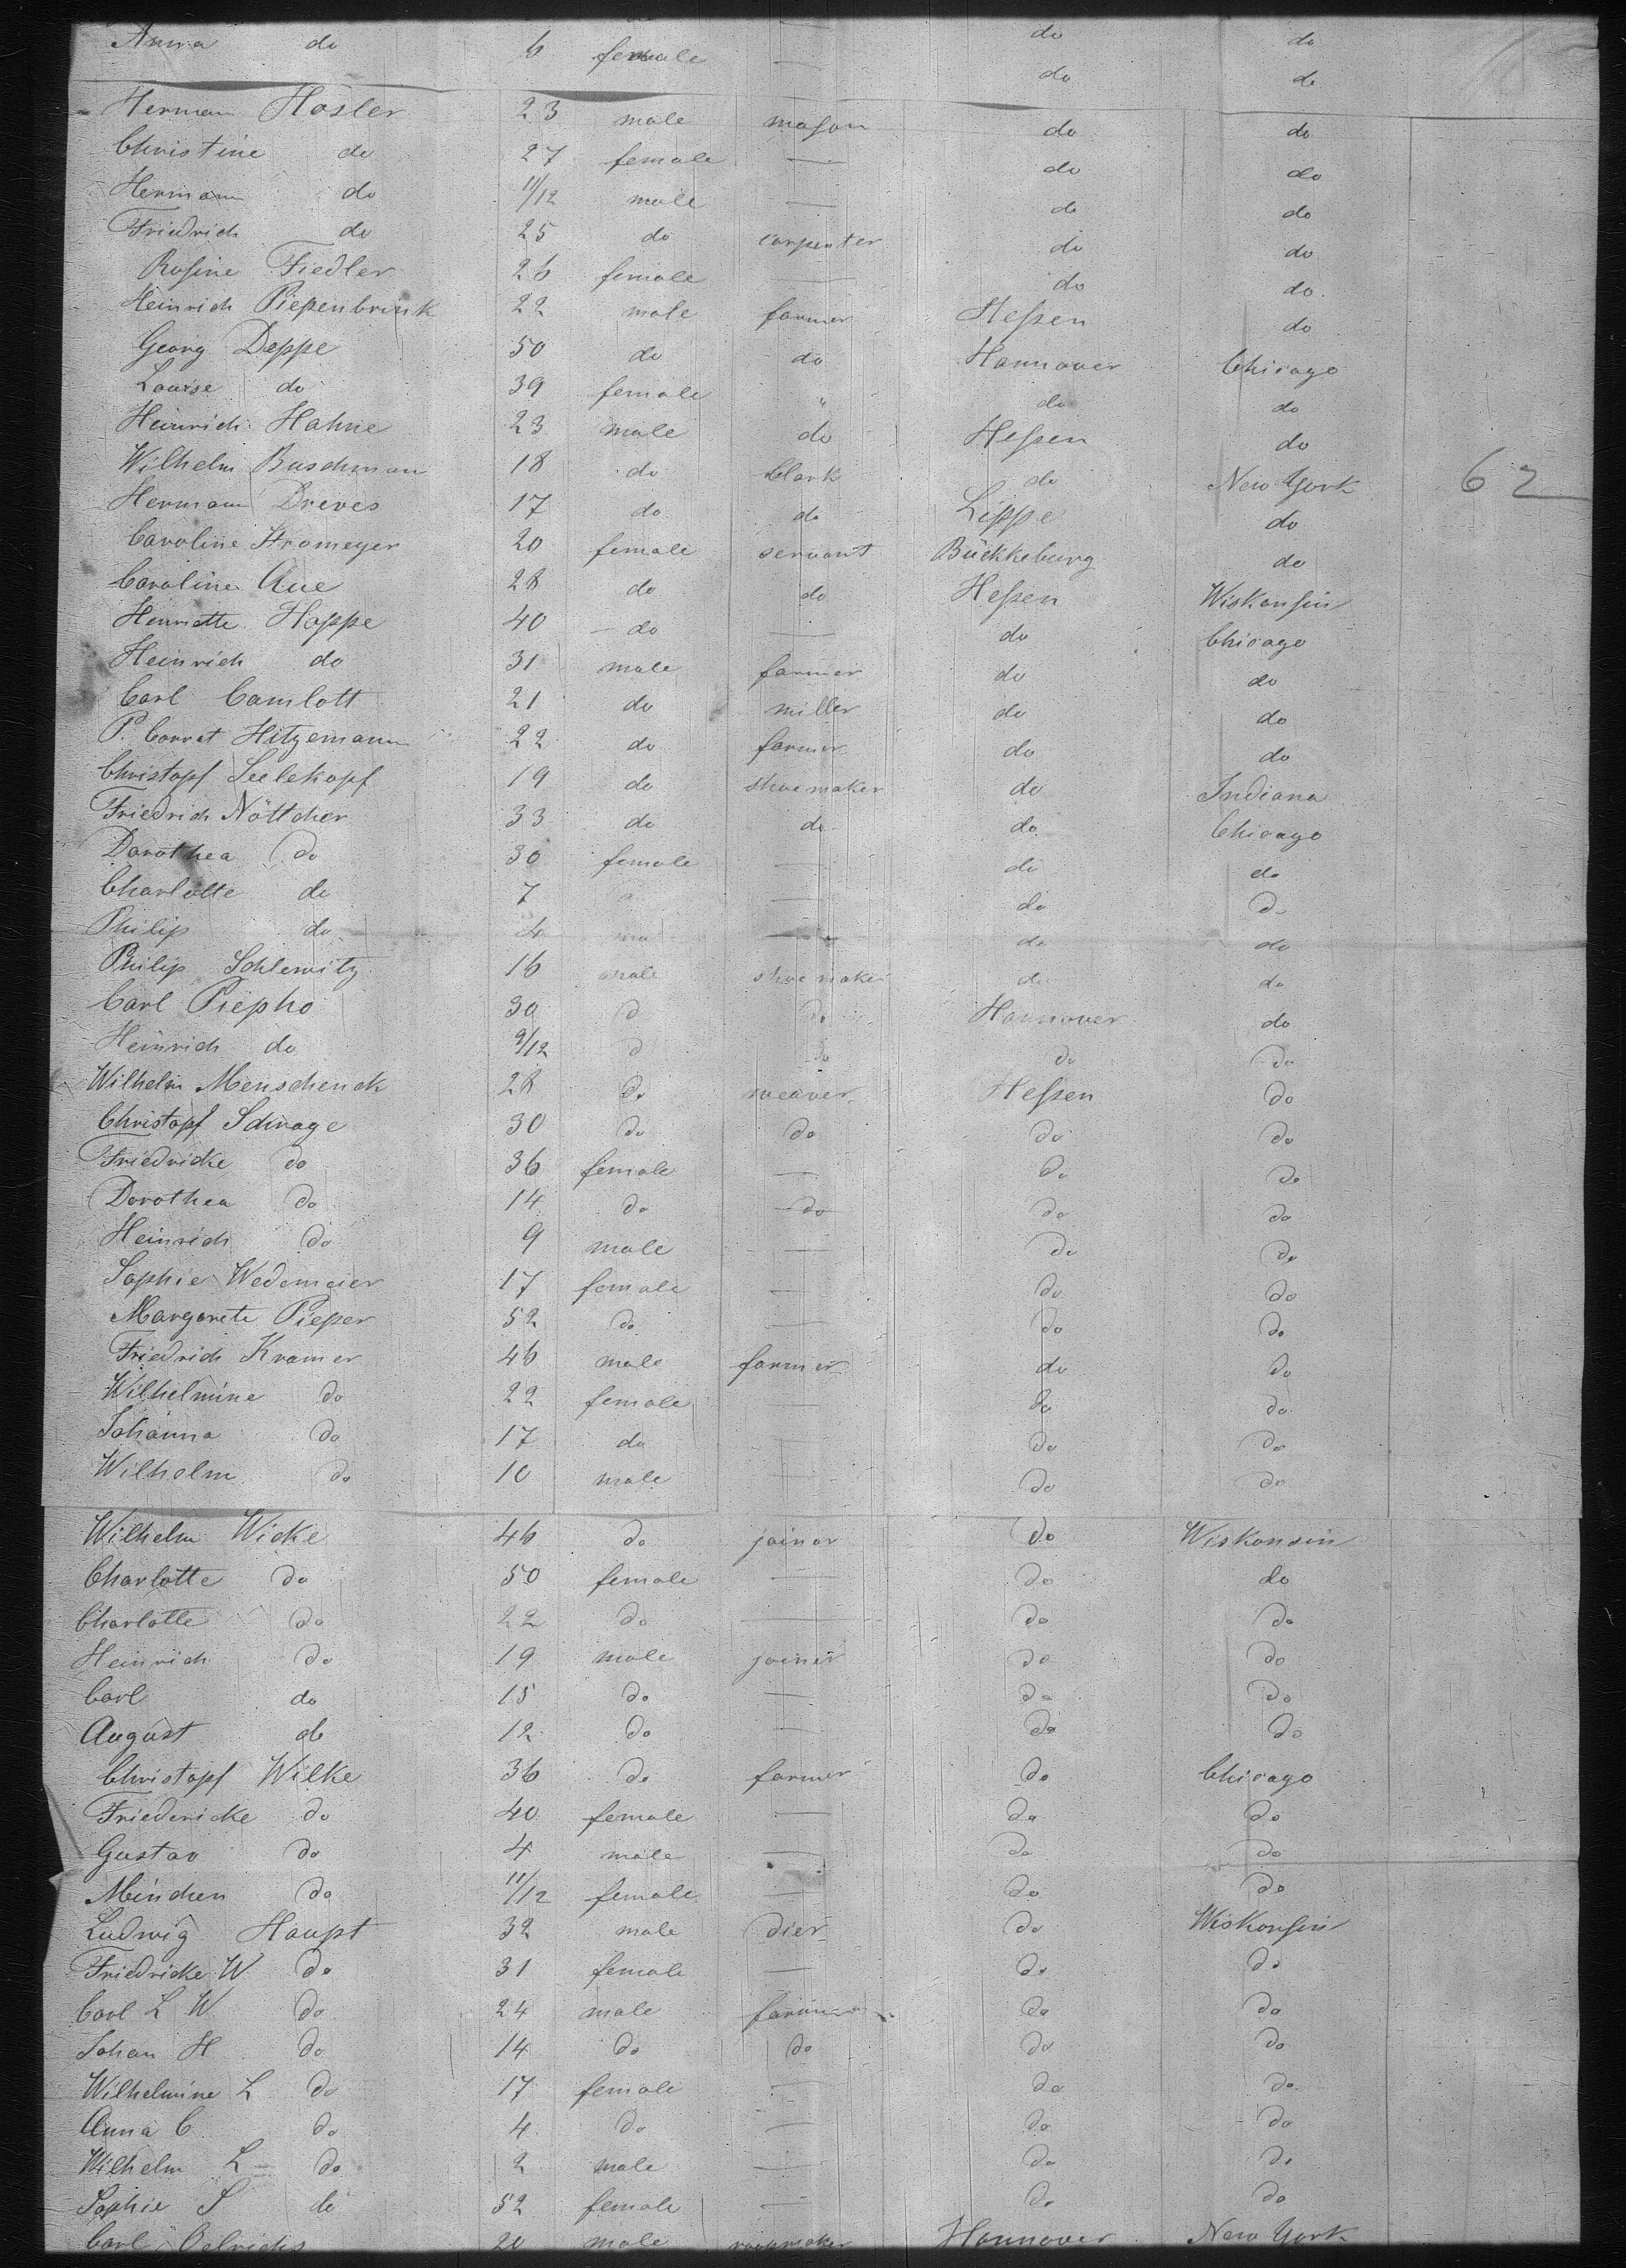 Anna do 6 female — do do
do do
Herman Hosler 23 male mason do do
Christine do 27 female — do do
Hermann do 11/12 male — do do
Friedrich do 25 do carpenter do do
Rosine Fiedler 26 female — do do
Heinrich Piepenbrink 22 male farmer Hessen do
Georg Deppe 50 do do Hannover Chicago
Louise do 39 female " do do
Heinrich Hahne 23 male do Hessen do
Wilhelm Buschman 18 do Clark do New York 62
Hermann Dreves 17 do do Lippe do
Caroline Stromeyer 20 female servant Bückkeburg do
Caroline Aue 28 do do Hessen Wiskonsin
Henriette Hoppe 40 do — do Chicago
Heinrich do 31 male farmer do do
Carl Camlott 21 do miller do do
P. Conrat Hitzemann 22 do farmer do do
Christopf Seelekopf 19 do shoemaker do Indiana
Friedrich Nöttcher 33 do do do Chicago
Dorothea do 30 female — do do
Charlotte do 7 — do do
Philip do 4 — do do
Philip Schlewitz 16 male shoemaker do do
Carl Piepho 30 d do Hannover do
Heinrich do 9/12 d do do do
Wilhelm Menschenck 28 do weaver Hessen do
Christopf Schrage 30 do do do do
Friedricke do 36 female — do do
Dorothea do 14 do do do do
Heinrich do 9 male — do do
Sophie Wedemeier 17 female — do do
Margarete Pieper 52 do — do do
Friedrich Kramer 46 male farmer do do
Wilhelmine do 22 female — do do
Johanna do 17 do — do do
Wilhelm do 10 male do do
Wilhelm Wicke 46 do joiner do Wiskonsin
Charlotte do 50 female — do do
Charlotte do 22 do — do do
Heinrich do 19 male joiner do do
Carl do 15 do — do do
August do 12 do — do do
Christopf Wilke 36 do farmer do Chicago
Friedericke do 40 female — do do
Gustav do 4 male — do do
Minchen do 11/12 female — do do
Ludwig Haupt 32 male dier do Wiskonsin
Friedricke W do 31 female — do do
Carl L W do 24 male farmer do do
Johan H do 14 do do do do
Wilhelmine L do 17 female — do do
Anna C do 4 do — do do
Wilhelm L do 2 male — do do
Sophie S do 52 female — do do
Carl Oelrichs 20 male Hannover New York